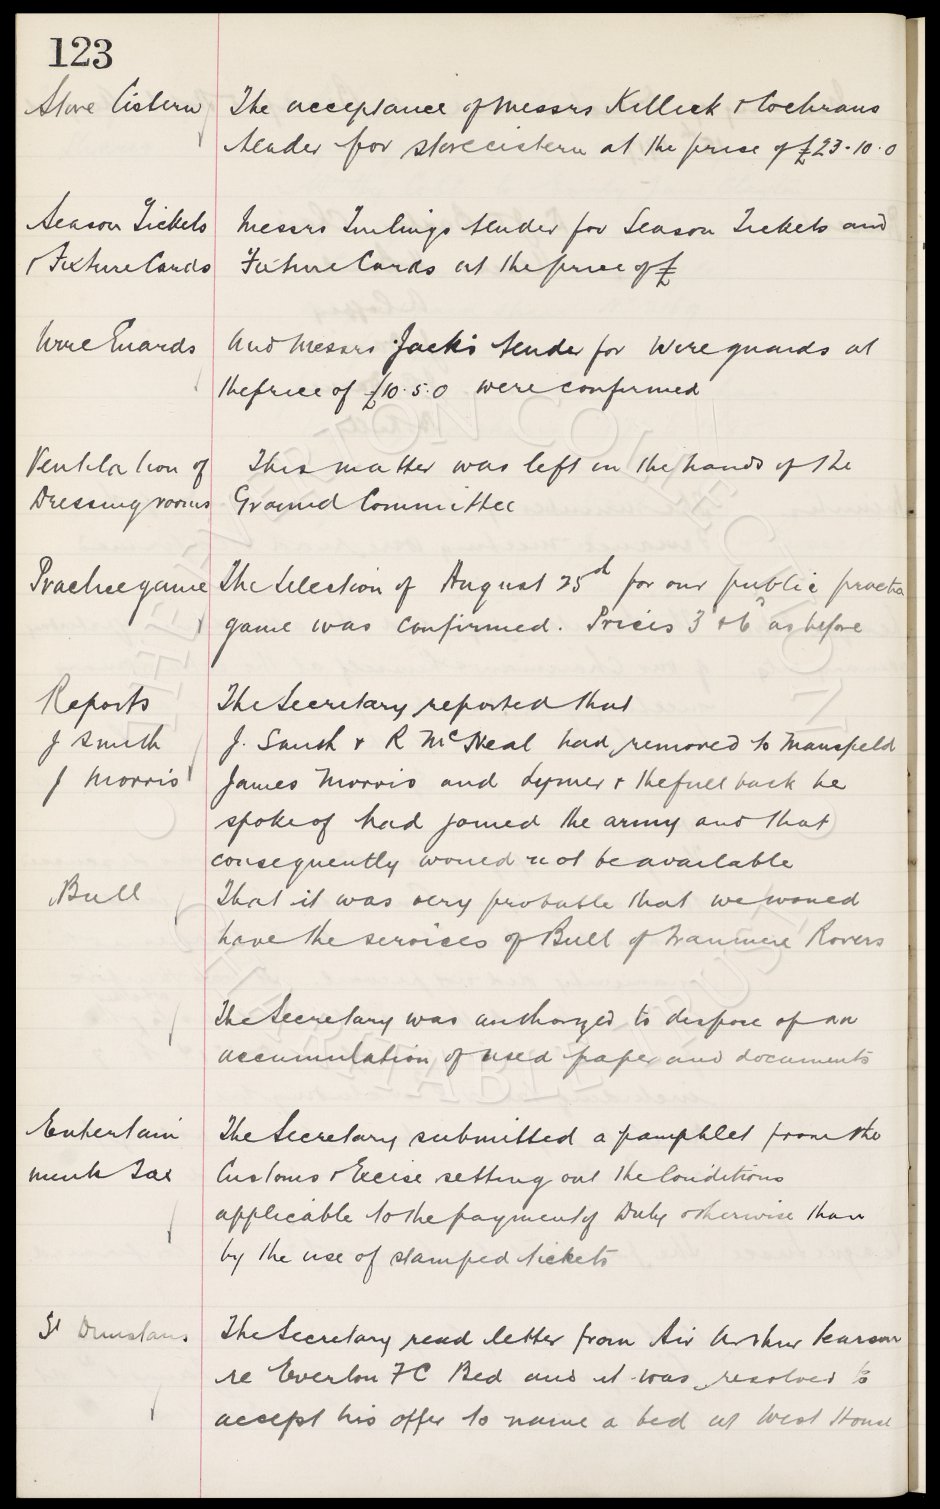 123
Stove Cistern The acceptance of Messrs Killick & Cochrans
tender for stove cistern at the price of £23-10-0
Season Tickets Messrs Tinlings tender for Season Tickets and
& Fixture Cards Fixture Cards at the price of £
Wire Guards And Messrs Jacks tender for Wire guards at
the price of £10.5.0 were confirmed
Ventilation of This matter was left in the hands of the
Dressing rooms Ground Committee
Practice game The Selection of August 25d for our public practice
game was confirmed. Prices 3d & 6d as before
Reports The Secretary reported that
J Smith J. Smith & R McNeal had removed to Mansfield
J Morris James Morris and Lymer & the full back he
spoke of had joined the army and that
consequently would not be available
Bull That it was very probable that we would
have the services of Bull of Tranmere Rovers
The Secretary was authorized to dispose of an
accumulation of used paper and documents
Entertain The Secretary submitted a pamphlet from the
ments Tax Customs & Excise setting out the Conditions
applicable to the payment of Duty otherwise than
by the use of stamped tickets
St Dunstans The Secretary read letter from Sir Arthur Pearson
re Everton F C Bed and it was resolved to
accept his offer to name a bed at West House